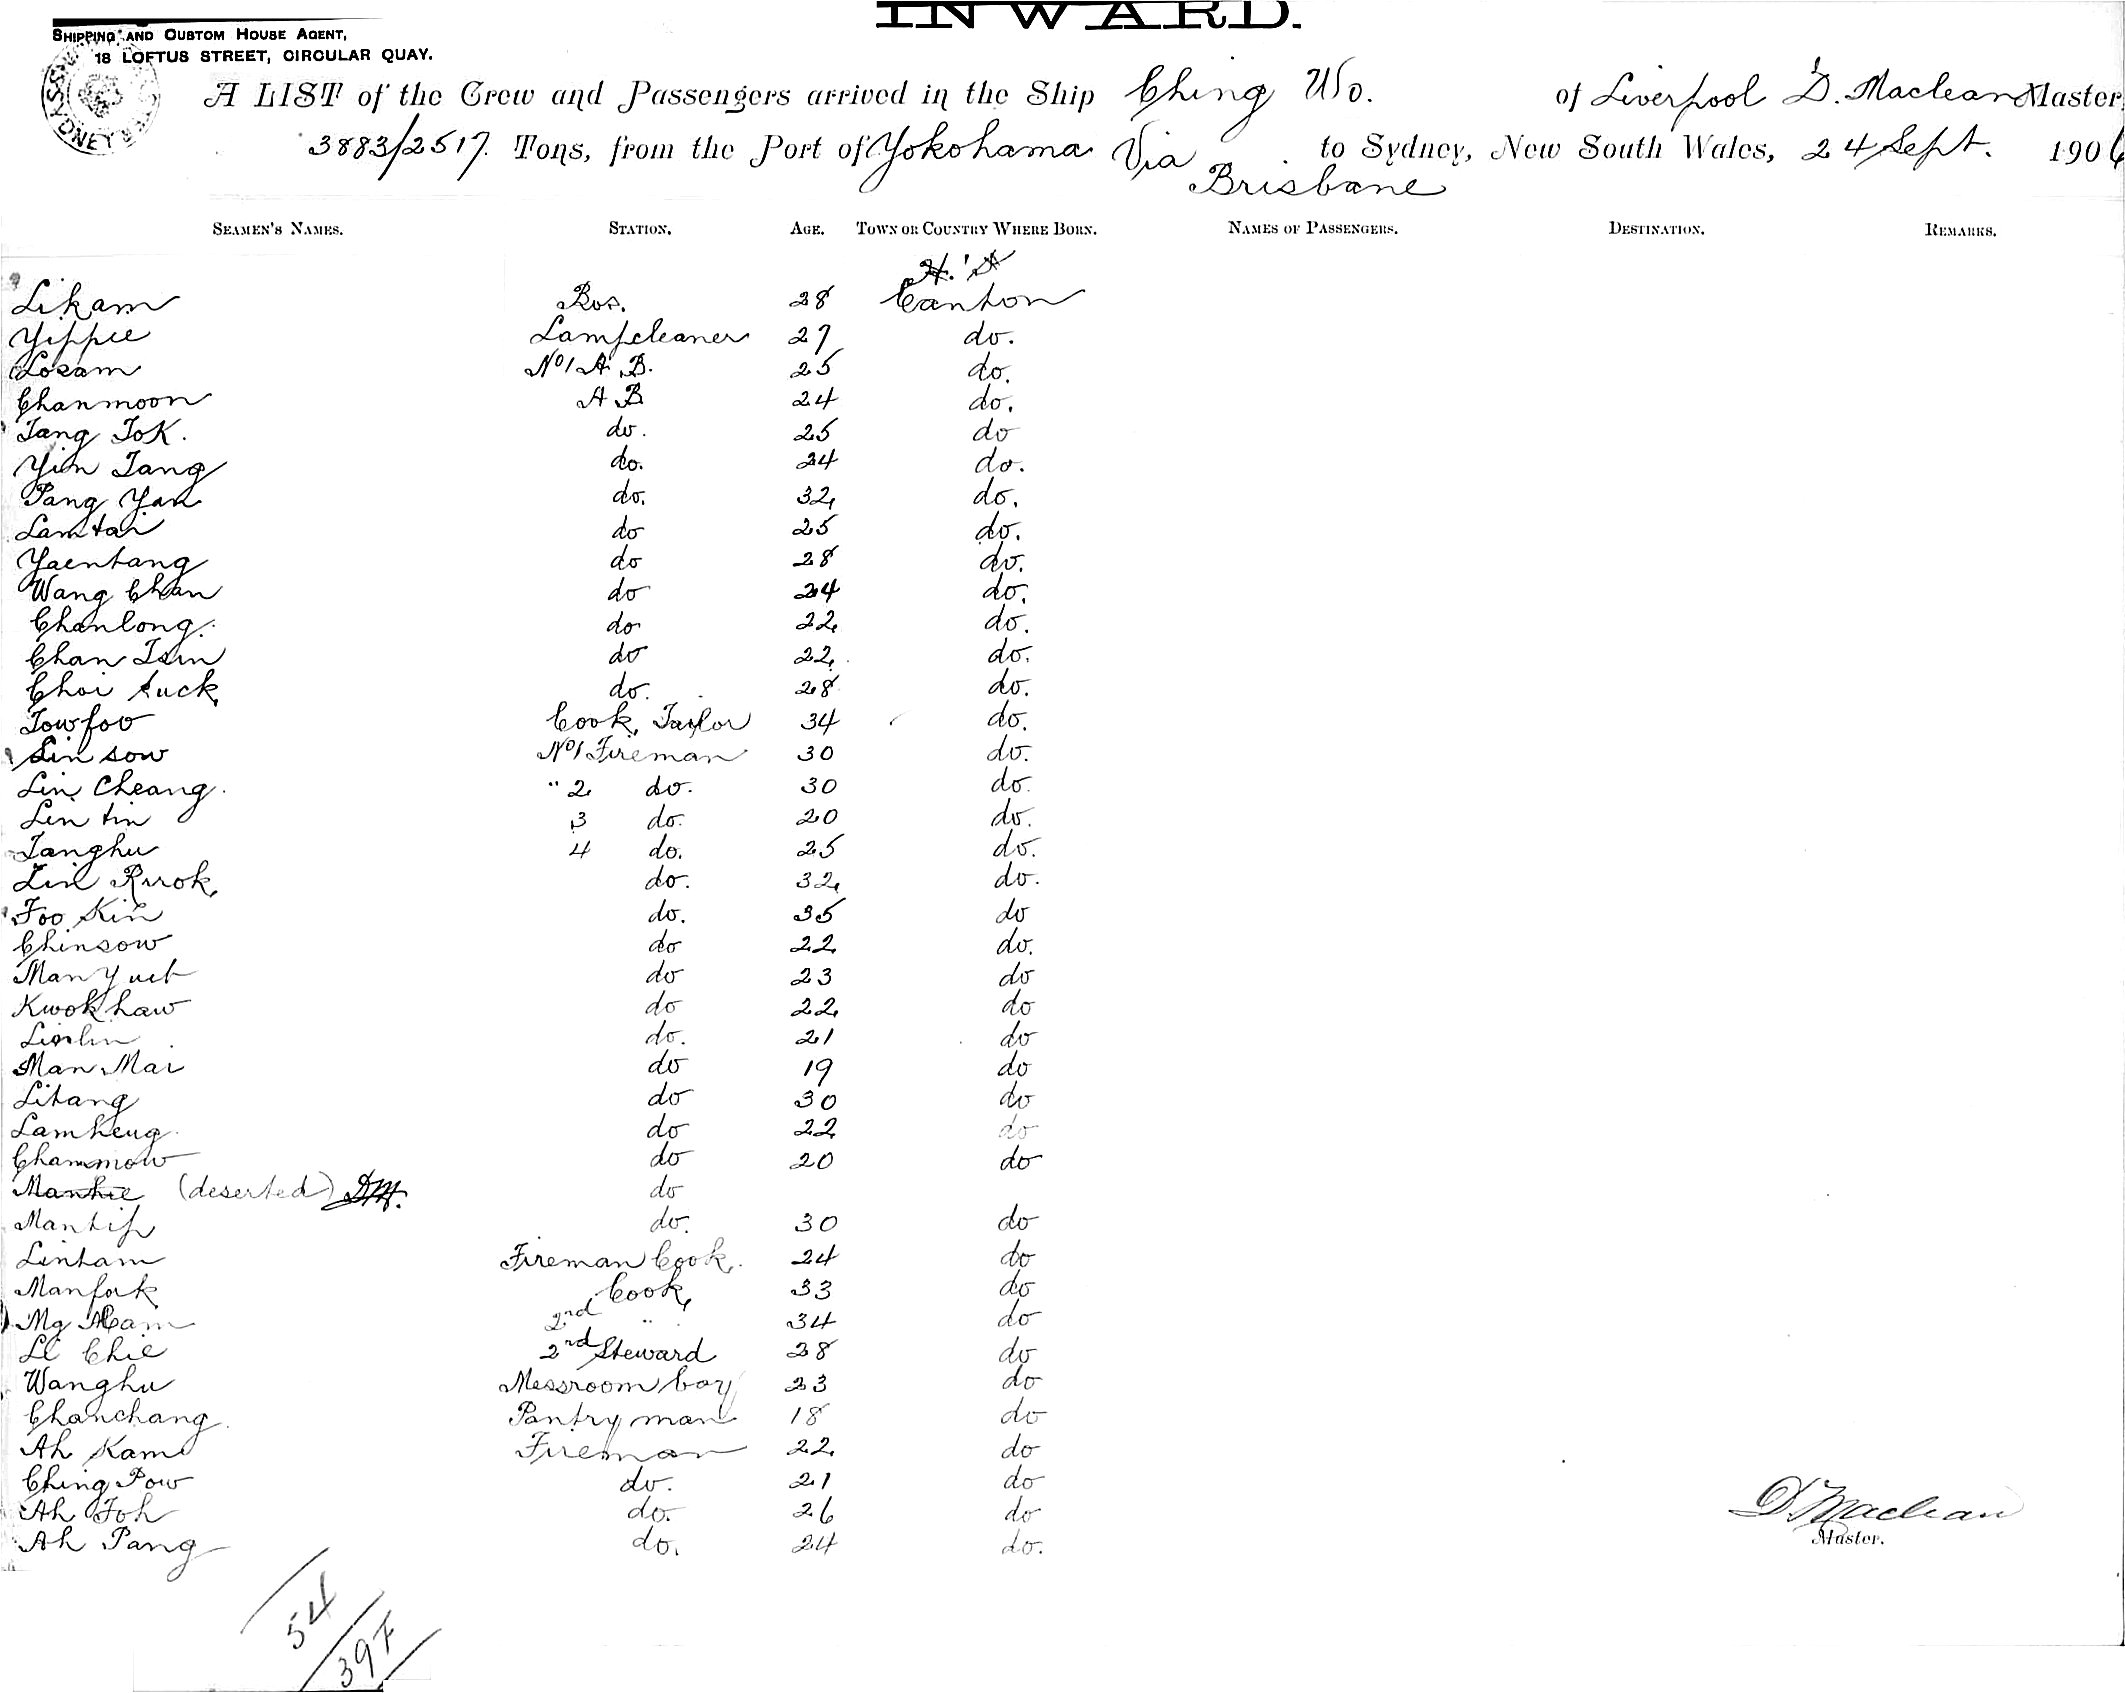 INWARD.
SHIPPING AND CUSTOM HOUSE AGENT,
18 LOFTUS STREET, CIRCULAR QUAY.
SYDNEY
A LIST of the Crew and Passengers arrived in the Ship Ching Wo. of Liverpool D. Maclean Master,
3883/2517. Tons, from the Port of Yokohama Via Brisbane to Sydney, New South Wales, 24 Sept. 1906
SEAMEN'S NAMES. STATION. AGE. TOWN OR COUNTRY WHERE BORN. NAMES OF PASSENGERS. DESTINATION. REMARKS.
Likam Bos. 28 Canton
Yippie Lampcleaner 27 do.
Losam No1 A.B. 25 do.
Chanmoon A B 24 do.
Tang Tok. do. 25 do
Yim Tang do. 24 do.
Pang Yan do. 32 do.
Lamtai do 25 do.
Yaentang do 28 do.
Wang Chan do 24 do.
Chanlong. do 22 do.
Chan Tsin do 22 do.
Choi Luck do. 28 do.
Towfoo Cook, Taylor 34 do.
Lin sow No1 Fireman 30 do.
Lin Cheang. " 2 do. 30 do.
Lin tin 3 do. 20 do.
Tanghu 4 do. 25 do.
Lin do. 32 do.
Foo Kin do. 35 do
Chinsow do 22 do.
Man Yuet do 23 do
Kwok haw do 22 do
do. 21 do
Man Mai do 19 do
Litang do 30 do
Lamheug. do 22 do
Chammow do 20 do
Manhie (deserted) DM. do
Mantip do. 30 do
Lintam Fireman Cook. 24 do
Manfook Cook 33 do
Mg 2nd " 34 do
Li Chie 2nd Steward 28 do
Wanghu Messroom boy 23 do
Chanchang. Pantryman 18 do
Ah Kam Fireman 22 do
Ching Pow do. 21 do
Ah Foh do. 26 do
Ah Pang do. 24 do.
D Maclean
Master.
54
397